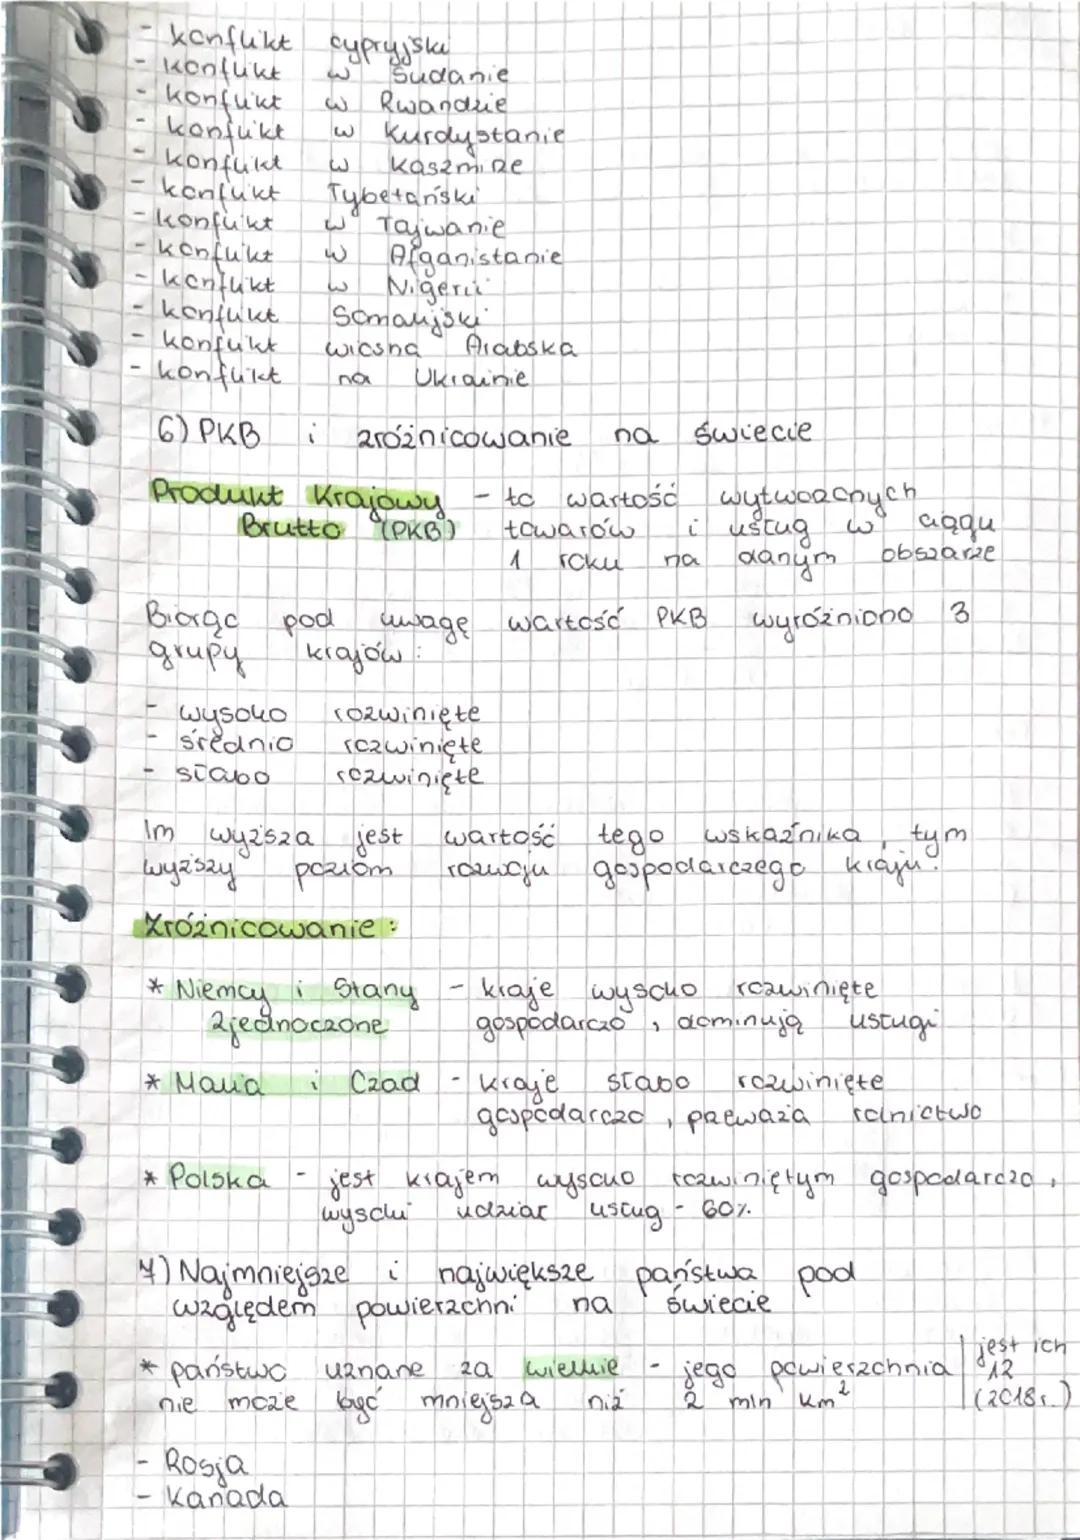 - konflikt cypryjski
- konflikt w Sudanie
- konflikt w Rwandzie
- konflikt w Kurdystanie
- konflikt w Kaszmirze
- konflikt Tybetański
- konflikt w Tajwanie
- konflikt w Afganistanie
- konflikt w Nigerii
- konflikt Somalijski
- konflikt wiosna Arabska
- konflikt na Ukrainie
6) PKB i zróżnicowanie na świecie
Produkt Krajowy - to wartość wytworzonych
Brutto (PKB) towarów i usług w ciągu
1 roku na danym obszarze
Biorąc pod uwagę wartość PKB wyróżniono 3
grupy krajów:
- wysoko rozwinięte
- średnio rozwinięte
- słabo rozwinięte
Im wyższa jest wartość tego wskaźnika, tym
wyższy poziom rozwoju gospodarczego kraju.
Zróżnicowanie:
* Niemcy i Stany - kraje wysoko rozwinięte
Zjednoczone gospodarczo, dominują usługi
* Malia i Czad - kraje słabo rozwinięte
gospodarczo, przeważa rolnictwo
* Polska - jest krajem wysoko rozwiniętym gospodarczo,
wysoki udział usług - 60%.
7) Najmniejsze i największe państwa pod
względem powierzchni na świecie
* państwo uznane za wielkie - jego powierzchnia
nie może być mniejsza niż 2 mln km²
jest ich
12
(2018r.)
- Rosja
- Kanada